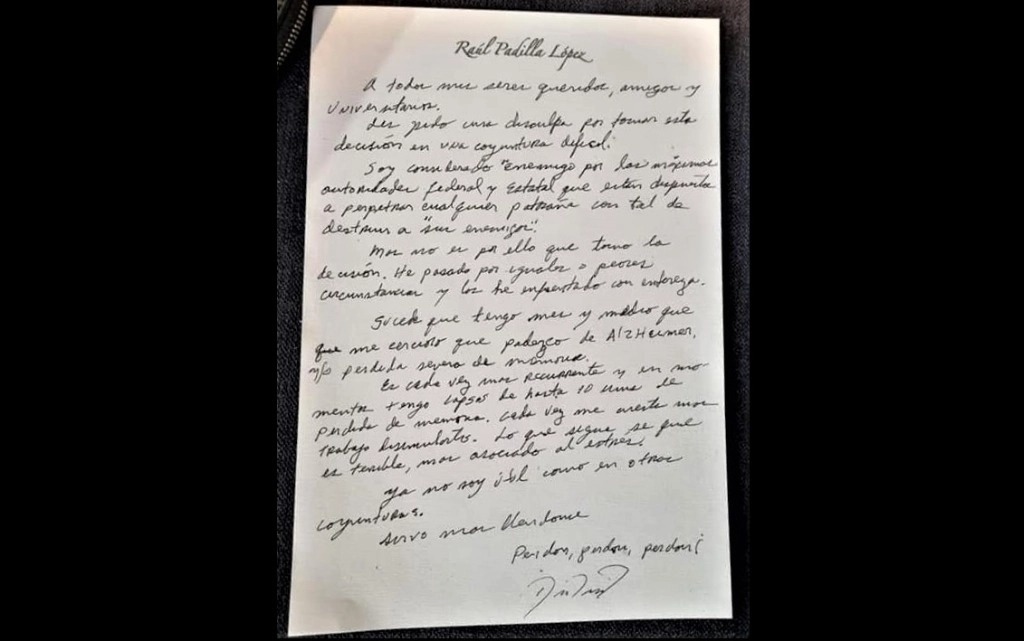 Raúl Padilla López
A todos mis seres queridos, amigos y
Universitarios.
Les pido una disculpa por tomar esta
decisión en una coyuntura difícil.
Soy considerado "enemigo por las máximas
autoridades federal y Estatal que están dispuestas
a perpetrar cualquier patraña con tal de
destruir a "sus enemigos".
Mas no es por ello que tomo la
decisión. He pasado por iguales o peores
circunstancias y las he enfrentado con entereza.
Sucede que tengo mes y medio que
que me cercioro que padezco de AlzHeimer,
y/o perdida severa de memoria.
Es cada vez mas recurrente y en mo
mentos tengo lapsos de hasta 10 de
perdida de memoria. Cada vez me cuesta mas
trabajo disimularlos. Lo que sigue, se que
es terrible, mas asociado al estres.
Ya no soy útil como en otras
coyunturas.
sirvo mas
Perdon, perdon, perdon!